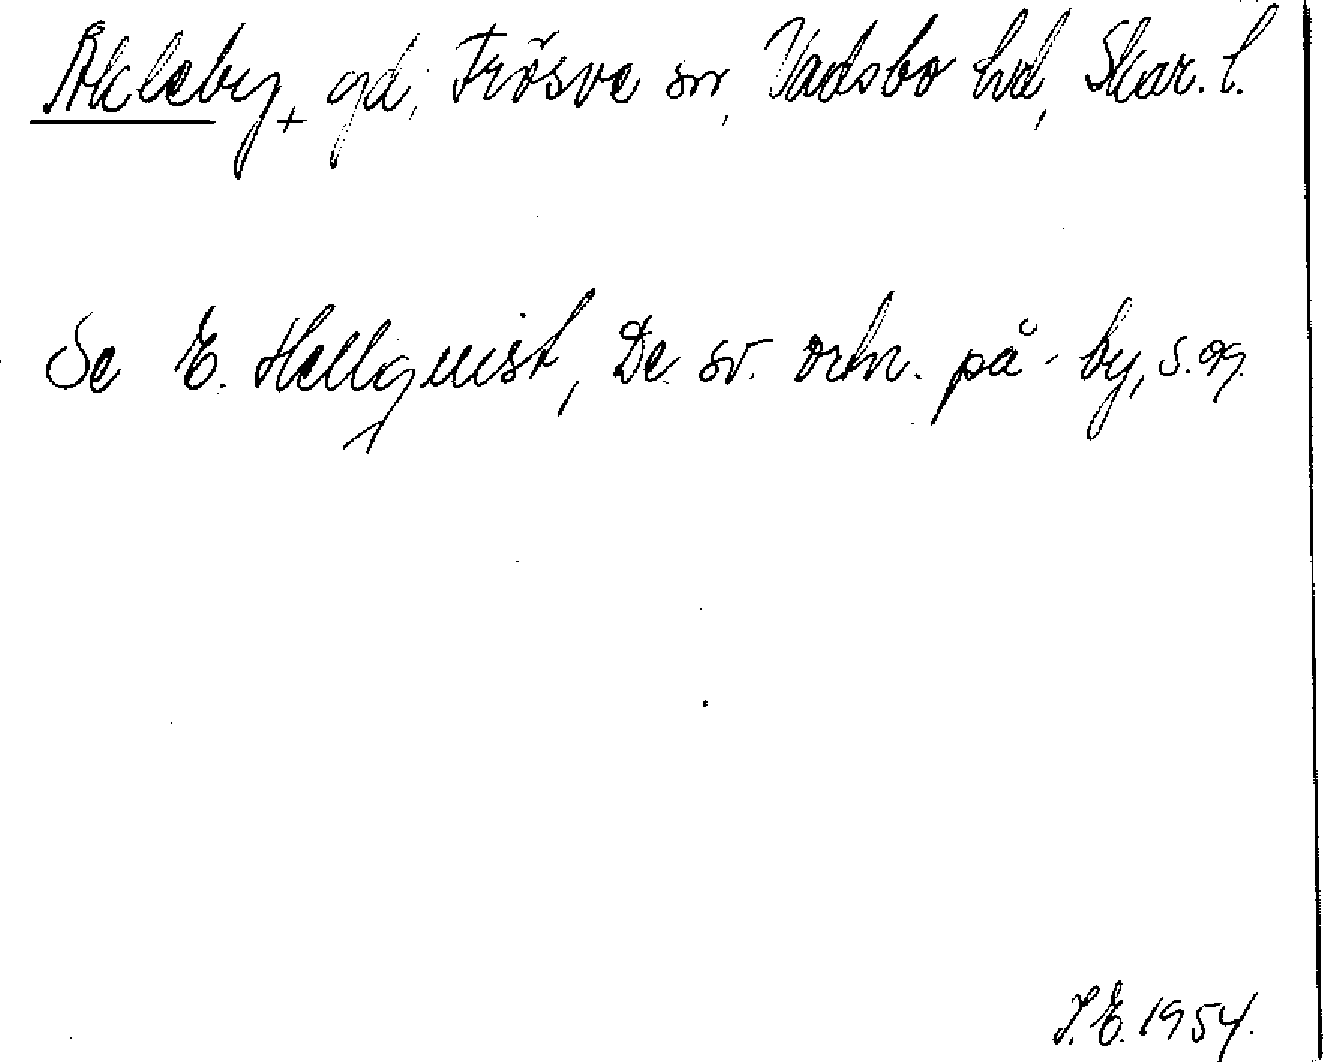 Akleby, gd, Frösve sn, Vadsbo hd, Skar. l.
Se E. Hellquist, De sv. ortn. på -by, s. 99.
I.E. 1954.